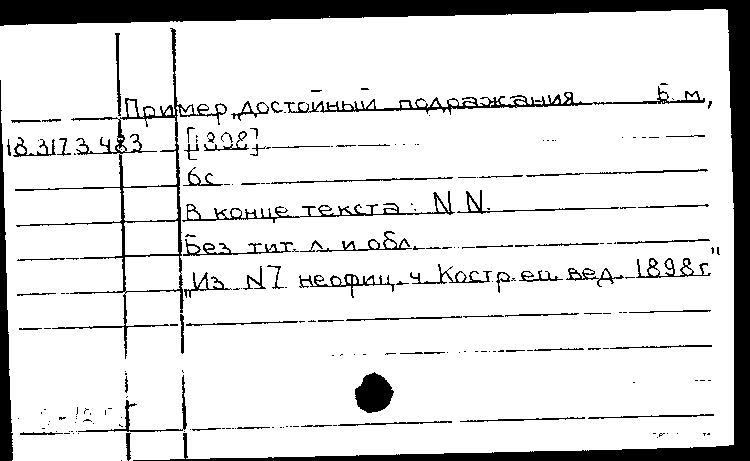 Пример, достойный подражания. Б. м,
18.317.3.483 [1898]
6с
В конце текста: N N.
Без тит. л. и обл.
„Из N7 неофиц. ч. Костр. еп. вед. 1898г."